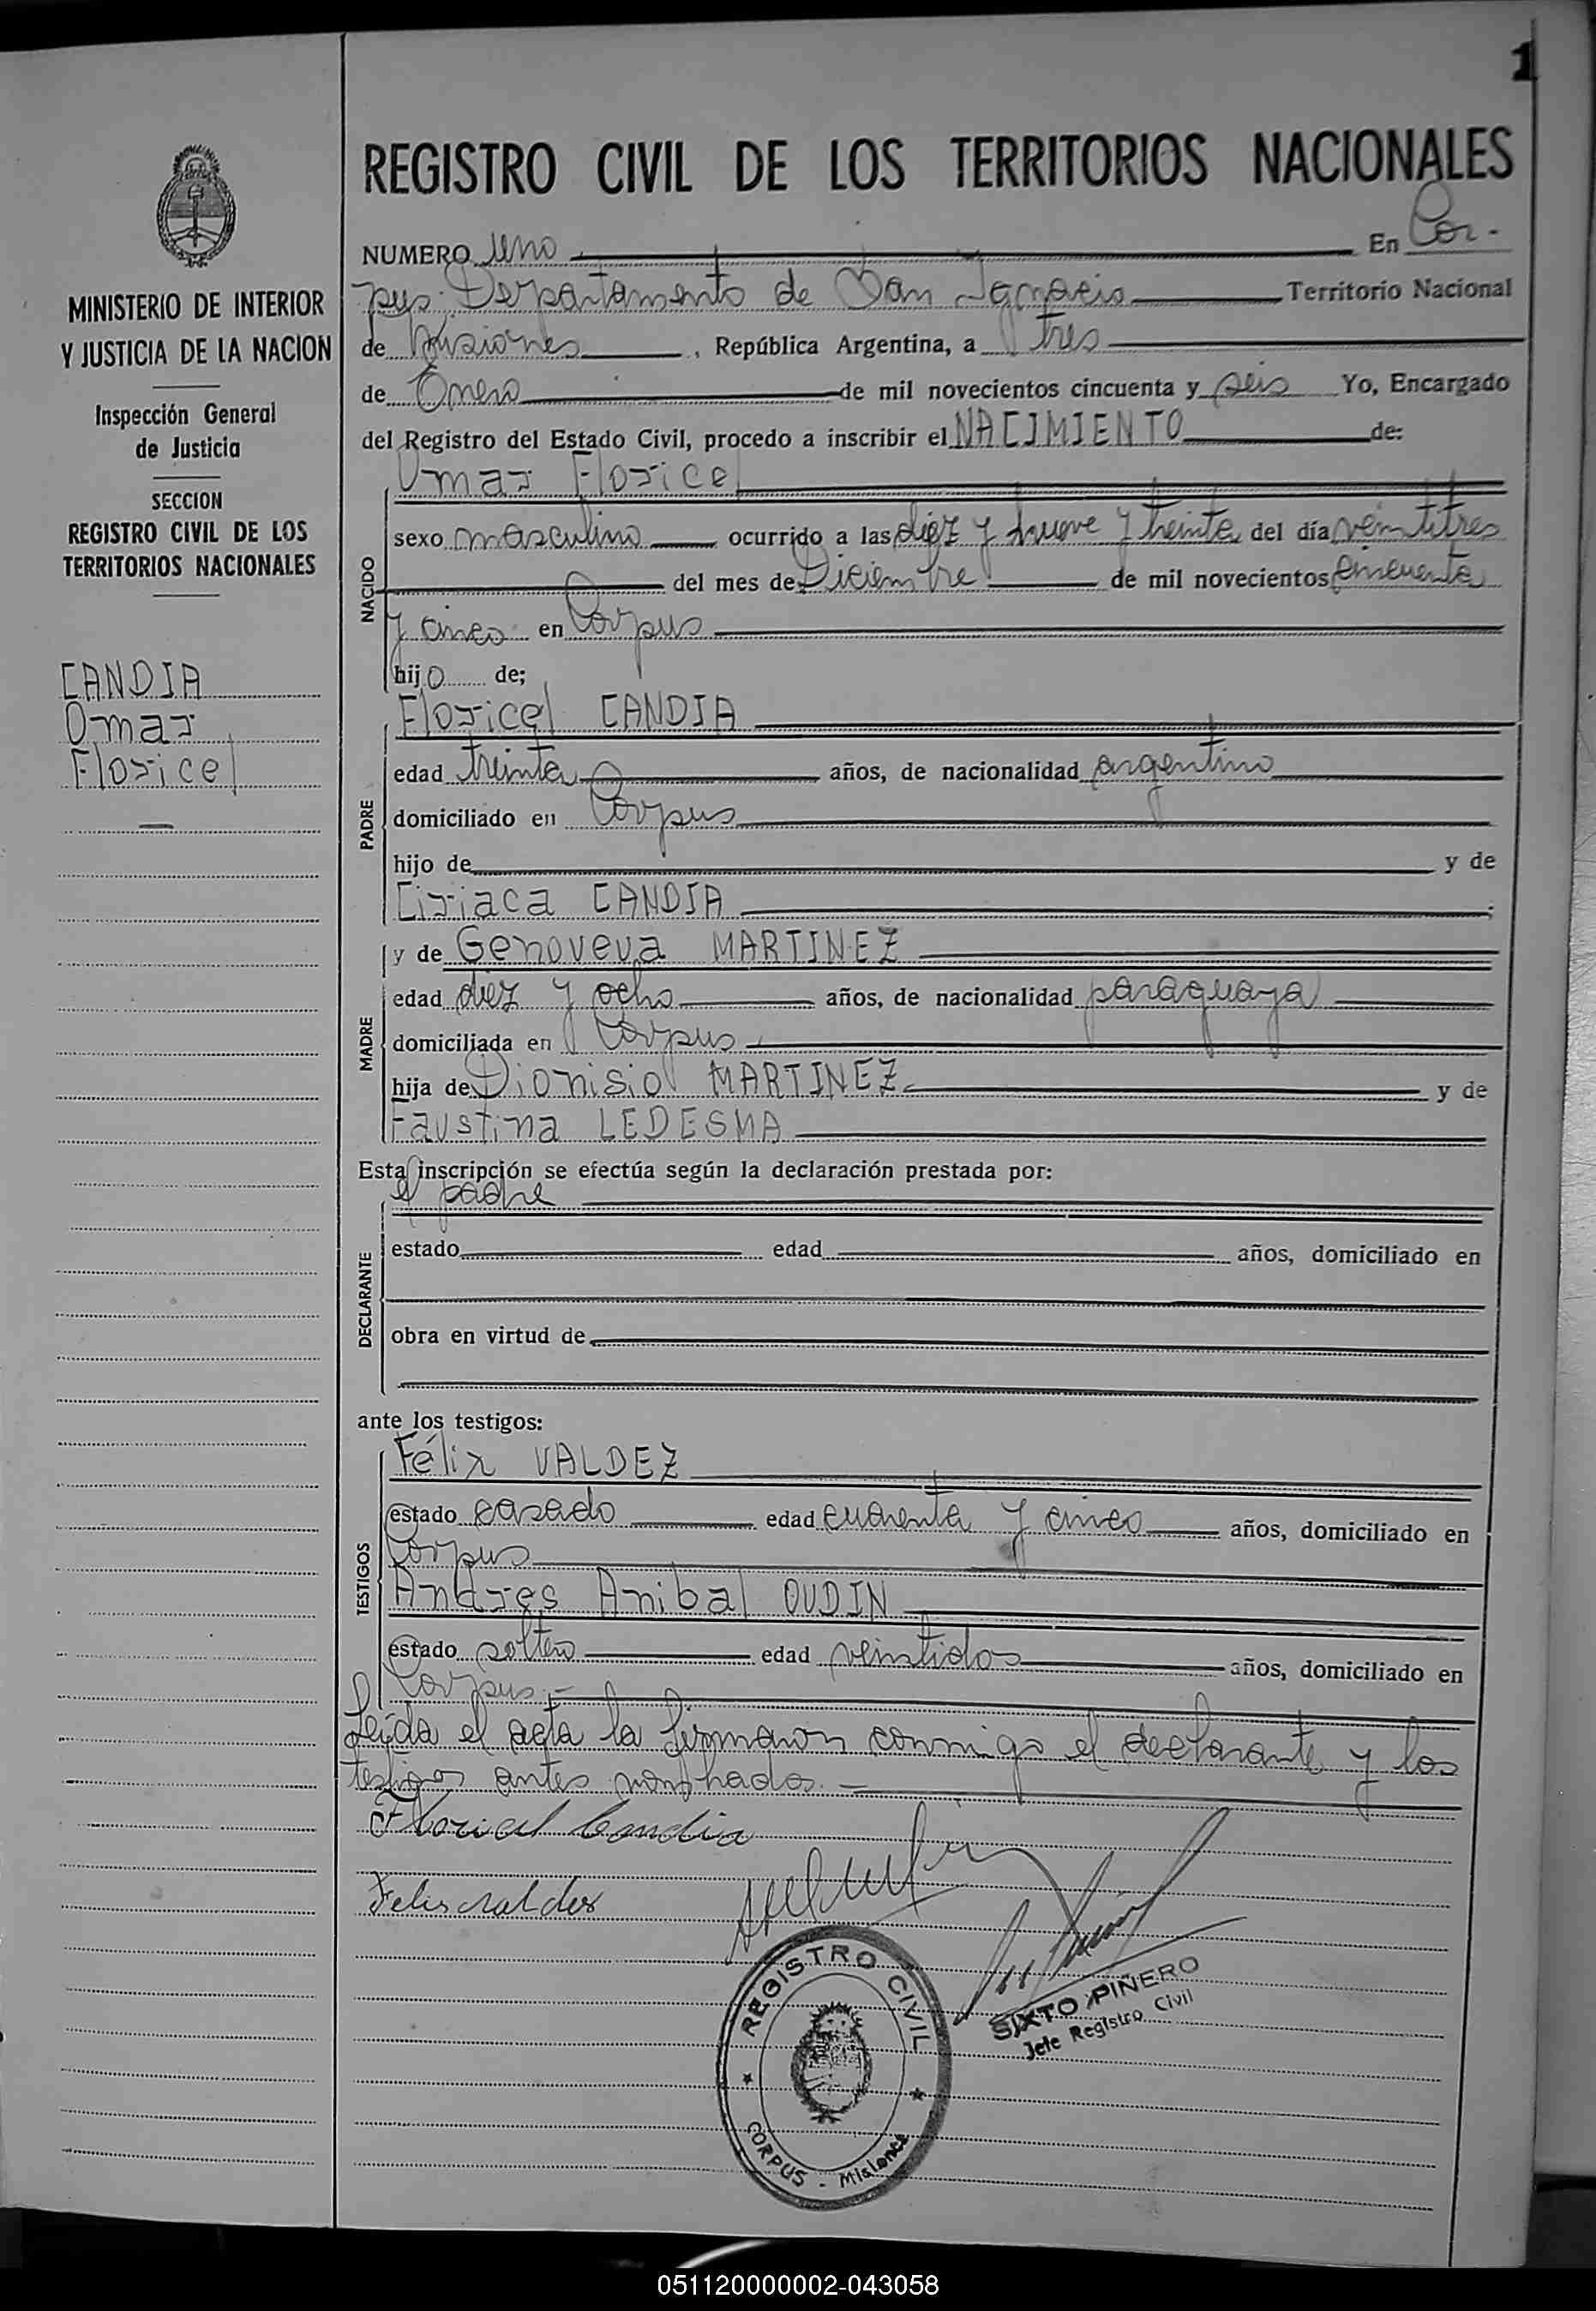 1
REGISTRO CIVIL DE LOS TERRITORIOS NACIONALES
MINISTERIO DE INTERIOR
Y JUSTICIA DE LA NACION
Inspección General
de Justicia
SECCION
REGISTRO CIVIL DE LOS
TERRITORIOS NACIONALES
CANDIA
Omar
Floricel
NUMERO uno En Cor-
pus. Departamento de San Ignacio Territorio Nacional
de Misiones, República Argentina, a tres
de Enero de mil novecientos cincuenta y seis Yo, Encargado
del Registro del Estado Civil, procedo a inscribir el NACIMIENTO de:
Omar Floricel
NACIDO
sexo masculino ocurrido a las diez y nueve y treinta del día veintitres
del mes de Diciembre de mil novecientos cincuenta
y cinco en Corpus
hijo de;
Floricel CANDIA
PADRE
edad treinta años, de nacionalidad argentino
domiciliado en Corpus
hijo de y de
Ciriaca CANDIA ;
y de Genoveva MARTINEZ
MADRE
edad diez y ocho años, de nacionalidad paraguaya
domiciliada en Corpus
hija de Dionisio MARTINEZ y de
Faustina LEDESMA
Esta inscripción se efectúa según la declaración prestada por:
el padre
DECLARANTE
estado edad años, domiciliado en
obra en virtud de
ante los testigos:
Félix VALDEZ
TESTIGOS
estado casado edad cuarenta y cinco años, domiciliado en
Corpus
Andres Anibal OUDIN
estado soltero edad veintidos años, domiciliado en
Corpus.-
Leída el acta la firmaron conmigo el declarante y los
testigos antes nombrados.
Floricel Candia
Felis Valdes
REGISTRO CIVIL
CORPUS - Misiones
SIXTO PIÑERO
Jefe Registro Civil
051120000002-043058